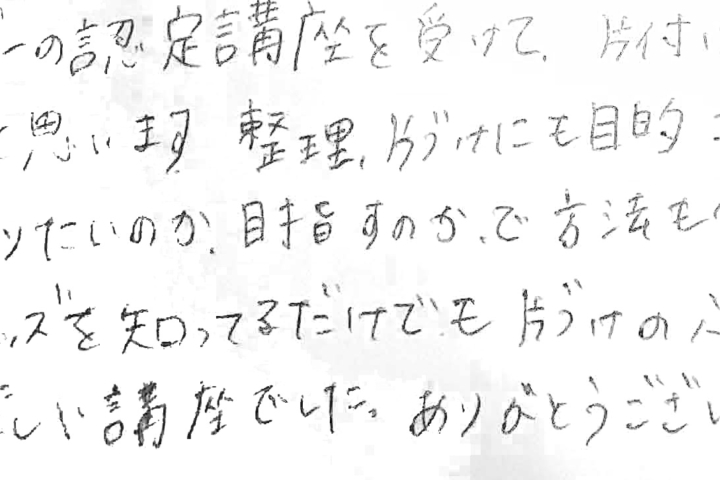 ーの認定講座を受けて、片付い
思います 整理、片づけにも目的
りたいのか、目指すのか、で方法も
ッズを知ってるだけでも片づけの
しい講座でした。ありがとうござい